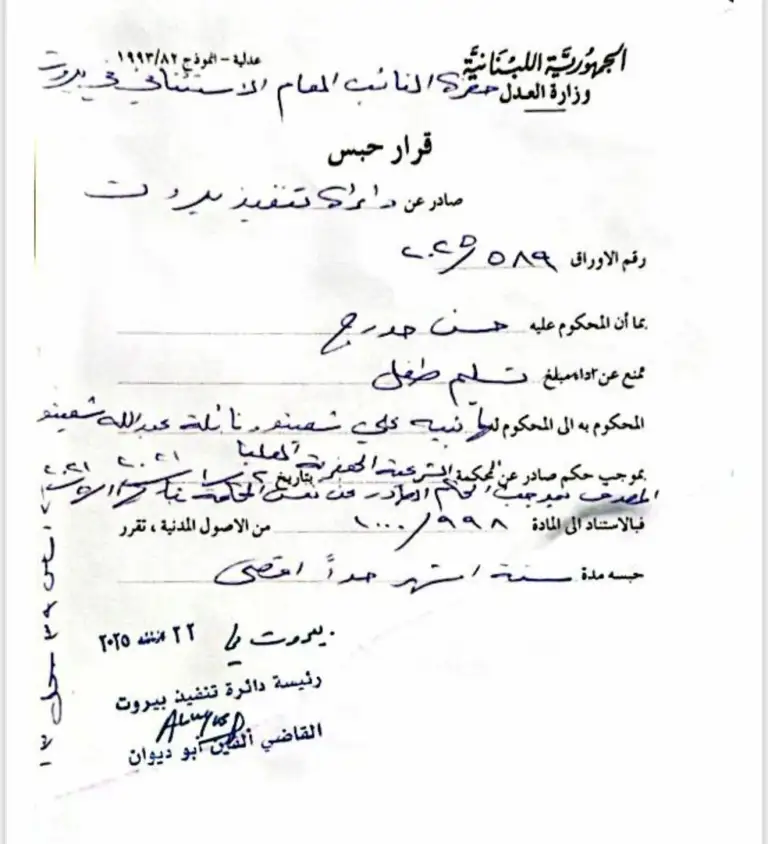 الجمهوريّة اللبنانيّة
وزارة العدل
عدلية - النموذج ١٩٩٣/٨٢
حضرة النائب العام الاستئنافي في بيروت
قرار حبس
صادر عن دائرة تنفيذ بيروت
رقم الاوراق ٥٨٩/٢٠٢٥
بما أن المحكوم عليه حسن
ممنع عن اداء مبلغ تسليم طفل
المحكوم به الى المحكوم لها نبيه علي شعيتو ونائلة عبدالله شعيتو
بموجب حكم صادر عن المحكمة الشرعية الجعفرية العليا بتاريخ
المصدق بموجب الحكم الصادر عن نفس المحكمة
فبالاستناد الى المادة ٩٩٨/١٠٠٠ من الاصول المدنية ، تقرر
حبسه مدة ستة اشهر حداً اقصى
بيروت في ٢٢ ٢٠٢٥
رئيسة دائرة تنفيذ بيروت
القاضي ألفين أبو ديوان